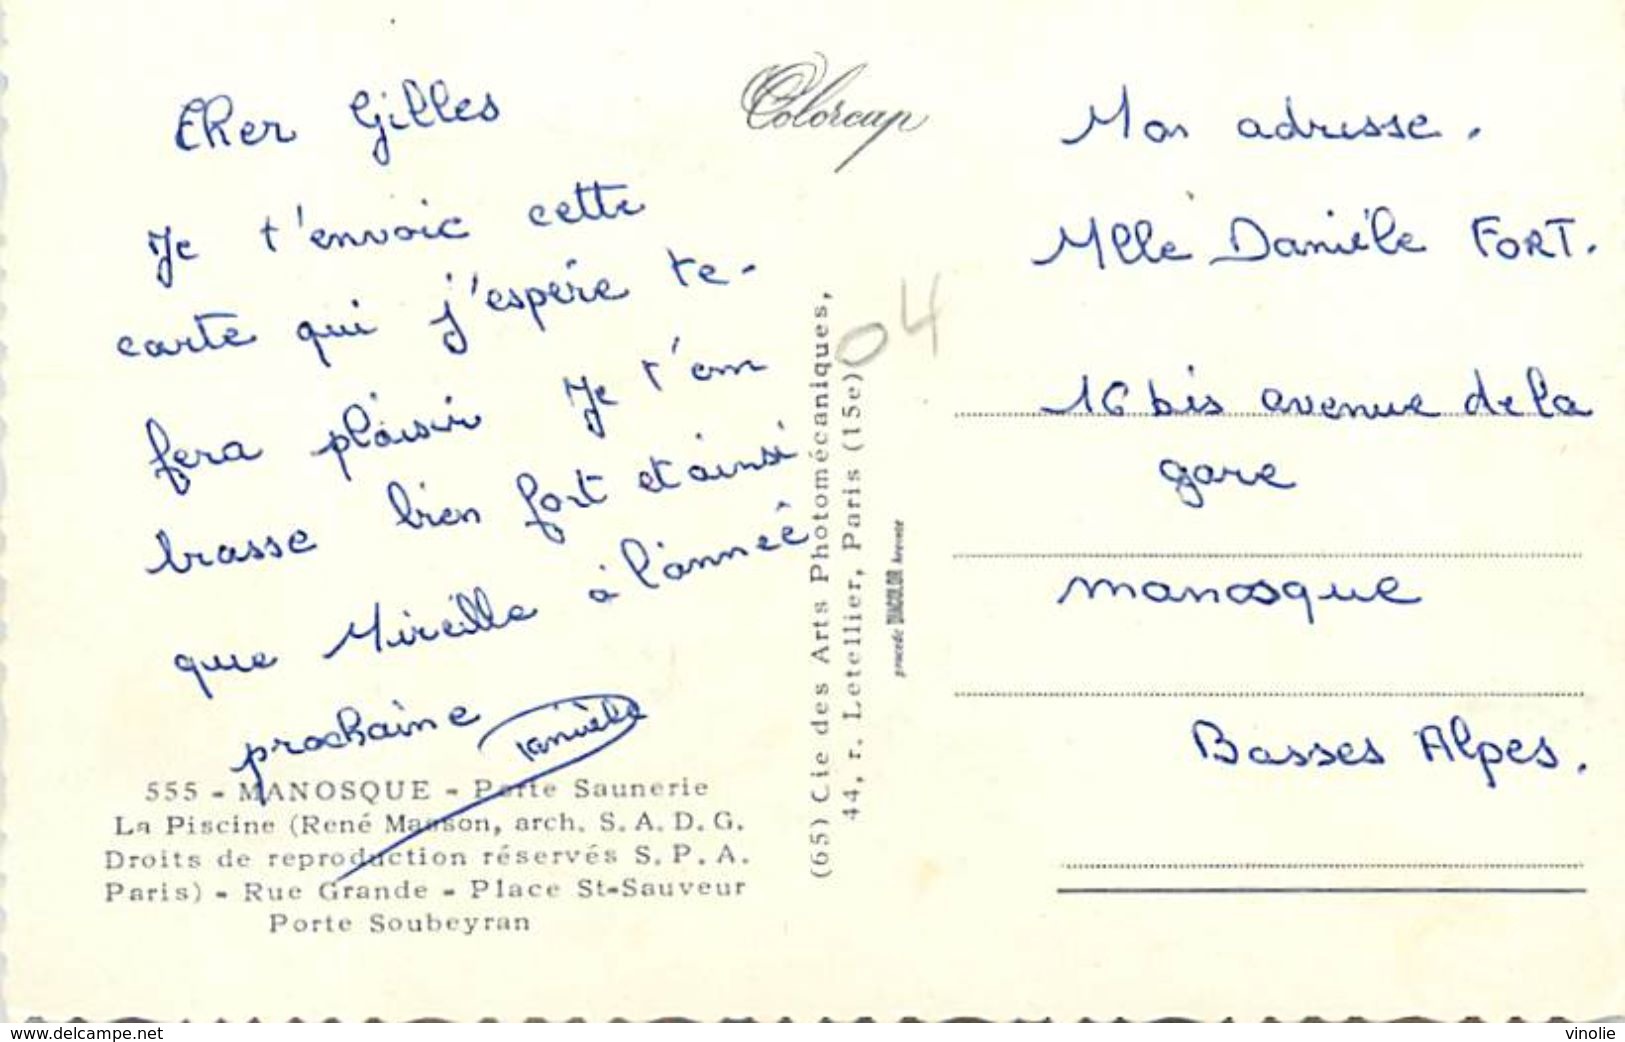 Cher Gilles
Je t'envoie cette
carte qui j'espère te-
fera plaisir Je t'em
brasse bien fort et ainsi
que Mireille à l'année
prochaine Danièle
555 - MANOSQUE - Porte Saunerie
La Piscine (René Masson, arch. S.A.D.G.
Droits de reproduction réservés S.P.A.
Paris) - Rue Grande - Place St-Sauveur
Porte Soubeyran
Colorcap
(65) Cie des Arts Photomécaniques,
44, r. Letellier, Paris (15e)
04
procédé DIACOLOR breveté
Mon adresse.
Mlle Danièle FORT.
16 bis avenue de la
gare
manosque
Basses Alpes.
www.delcampe.net
vinolie